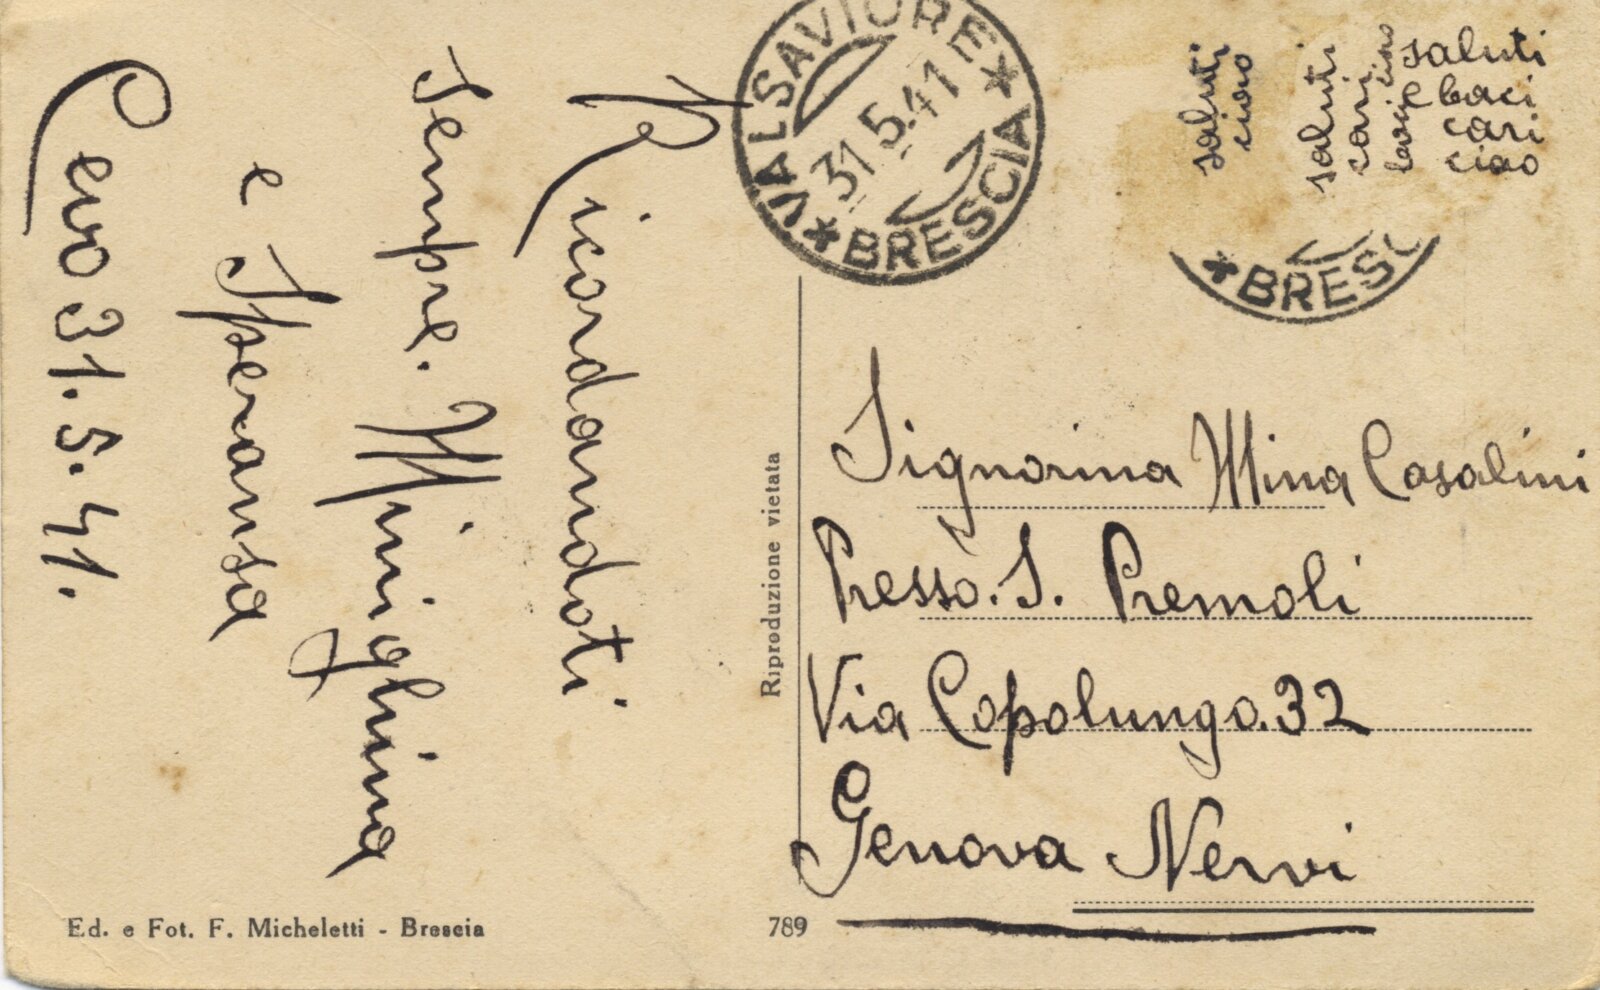 Cevo 31.5.41.
Ricordandoti
sempre. Minighina
e Speransa
VALSAVIORE
31.5.41
* BRESCIA *
saluti
ciao
saluti
cari
baci e
ciao
saluti
e baci
cari
ciao
* BRESC
Signorina Mina Casalini
Presso. S. Premoli
Via Copolungo. 32
Genova Nervi
Riproduzione vietata
Ed. e Fot. F. Micheletti - Brescia
789